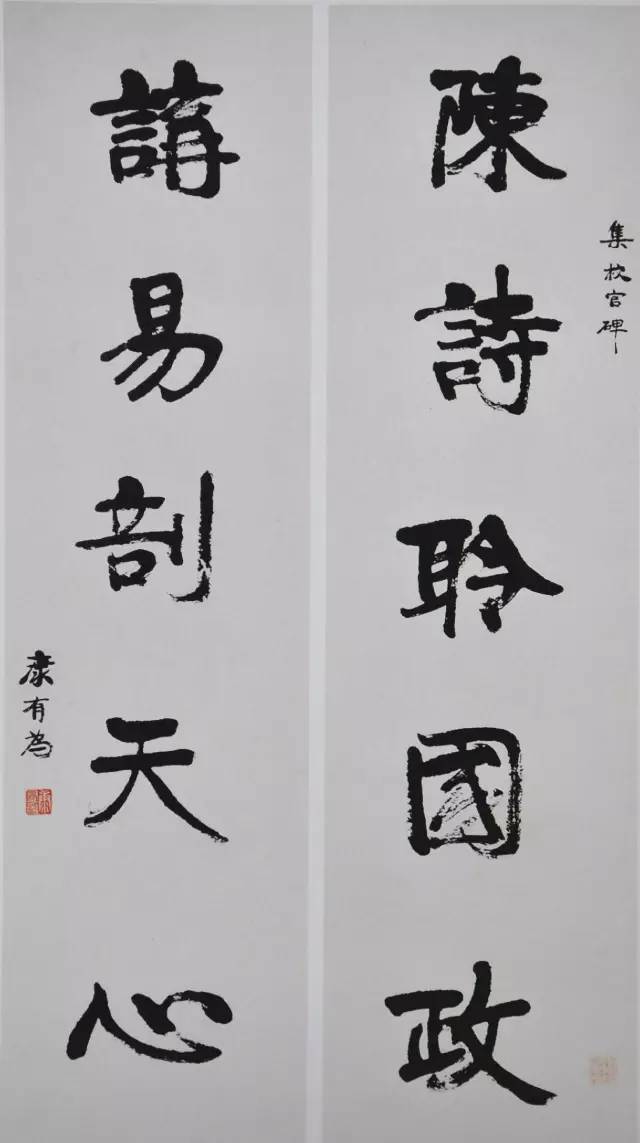 陳詩聆國政
集校官碑
講易剖天心
康有為